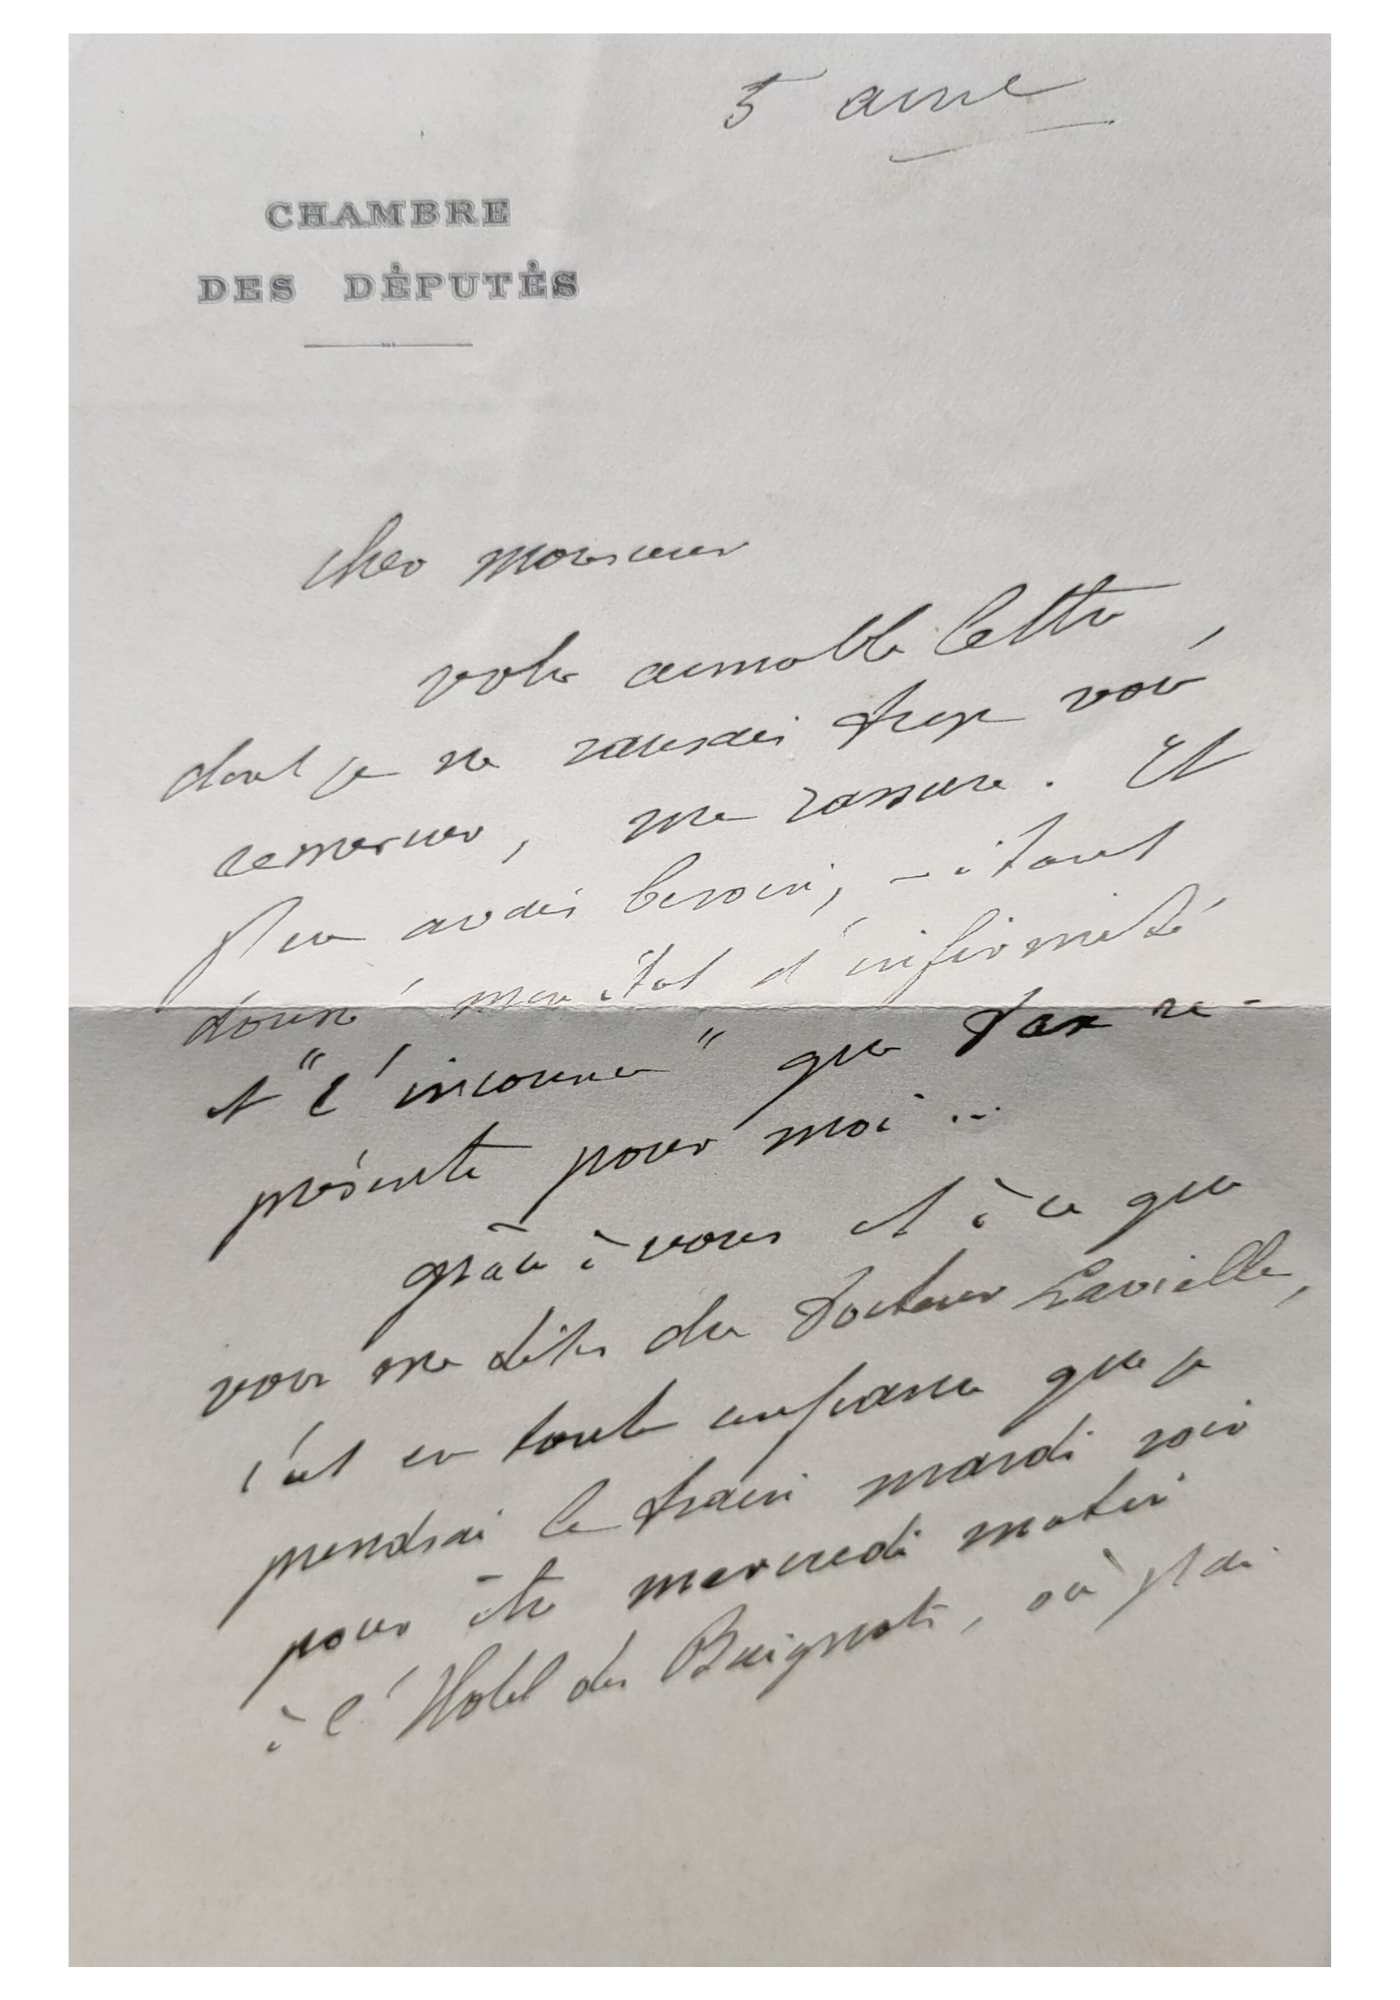 5 avril
CHAMBRE
DES DÉPUTÉS
Cher Monsieur
votre aimable lettre,
dont je ne saurais trop vous
remercier, me rassure. Et
j'en avais besoin, - étant
donné mon état d'infirmité
et "l'inconnu" que Dax re-
présente pour moi...
grâce à vous et à ce que
vous me dites du Docteur Lavielle,
c'est en toute confiance que je
prendrai le train mardi soir
pour être mercredi matin
à l'Hotel des Baignots, où j'ai